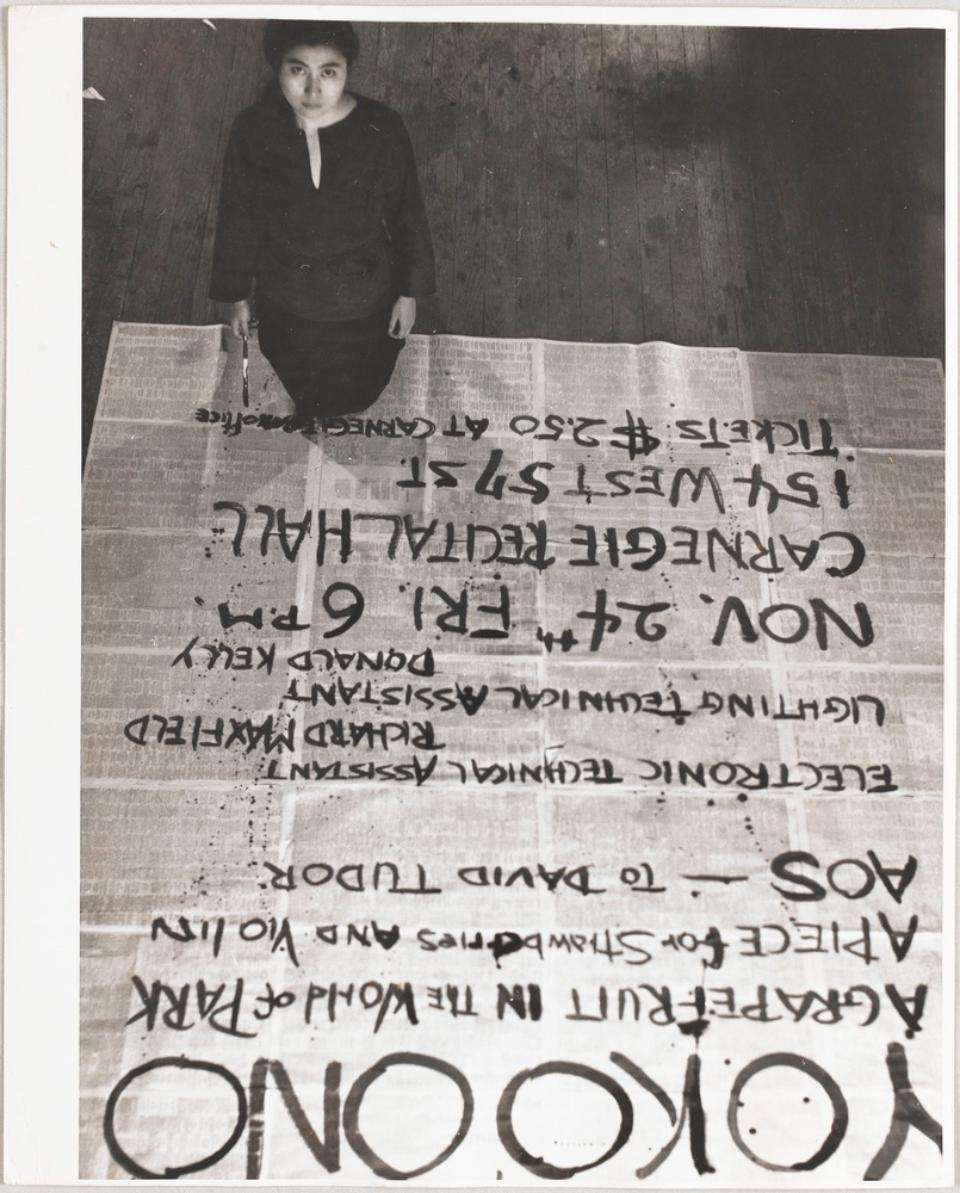 YOKO ONO
A GRAPEFRUIT IN THE WORLD of PARK
A PIECE for STRAWBERRIES AND VIOLIN
AOS — TO DAVID TUDOR
ELECTRONIC TECHNICAL ASSISTANT
RICHARD MAXFIELD
LIGHTING TECHNICAL ASSISTANT
DONALD KELLY
NOV. 24th FRI. 6 P.M.
CARNEGIE RECITAL HALL
154 WEST 57 ST.
TICKETS: $2.50 AT CARNEGIE Box office